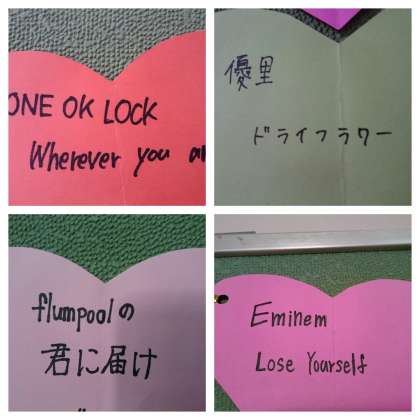 ONE OK LOCK
Wherever you
優里
ドライフラワー
flumpoolの
君に届け
Eminem
Lose Yourself